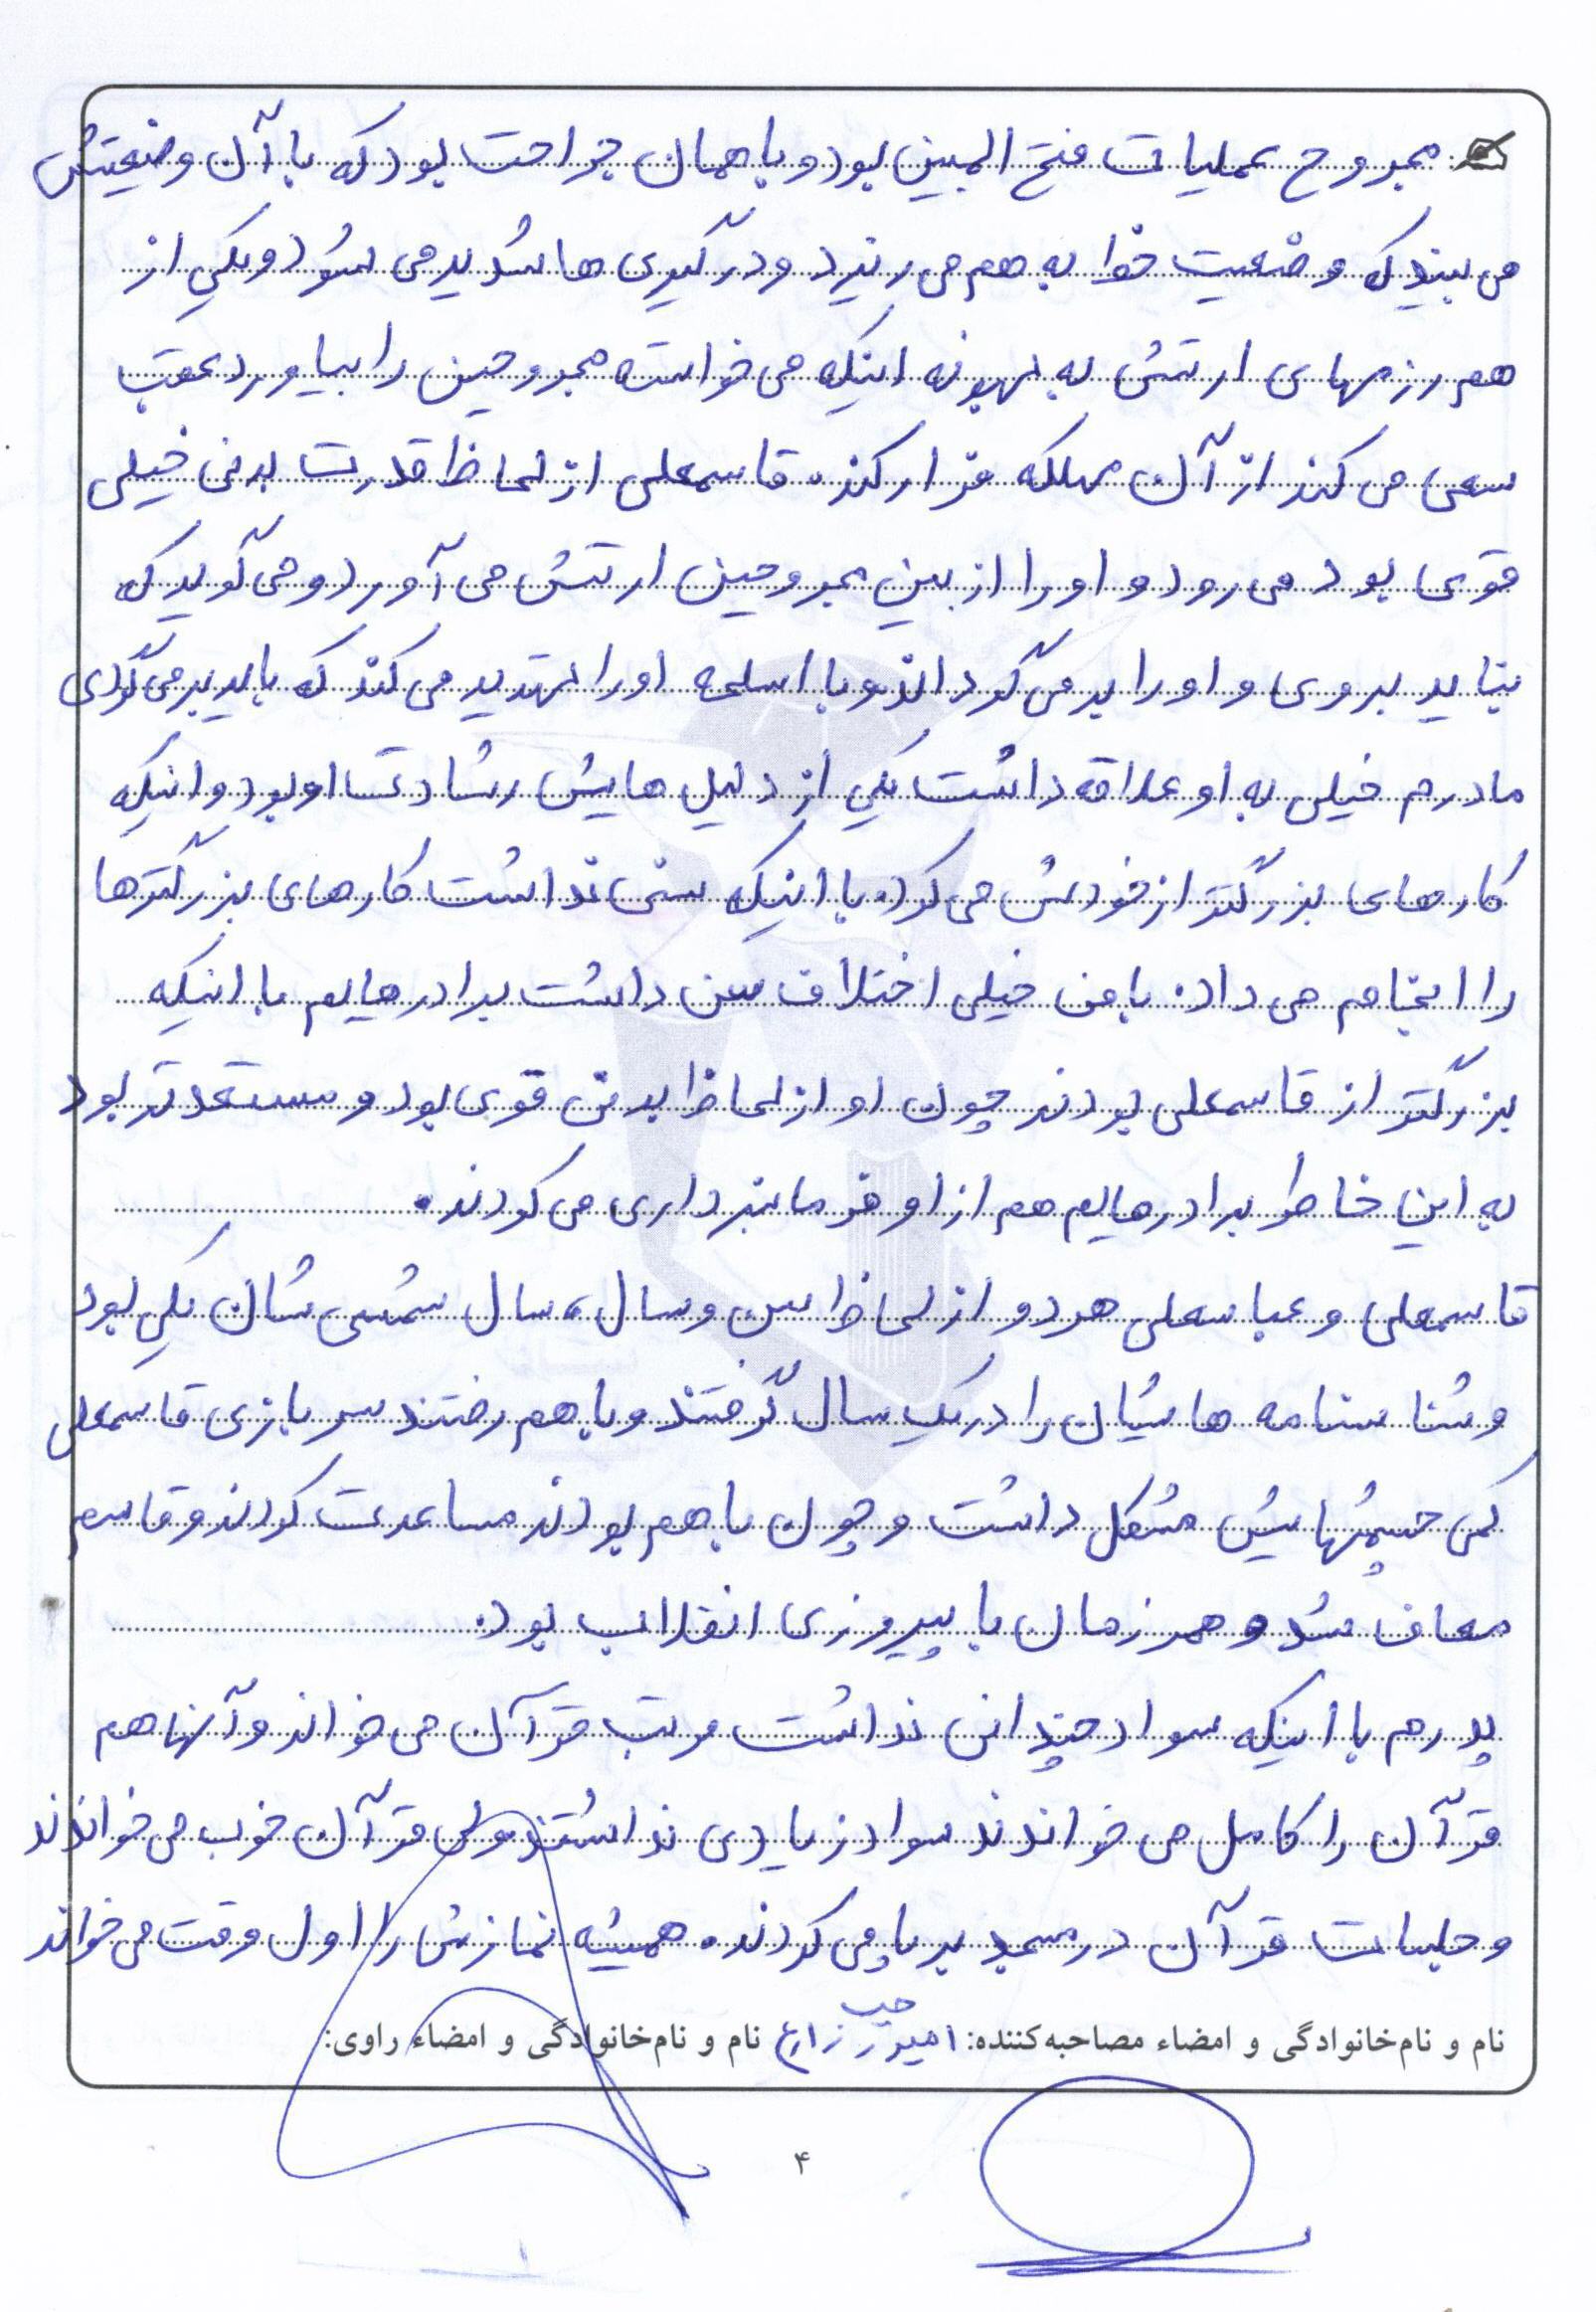 مجروح عملیات فتح المبین بود و با همان جراحت بود که با آن وضعیتش
می بیند که وضعیت خدا به هم می ریزد و درگیری ها شدید می شود و یکی از
هم رزمهای ارتش به بهونه اینکه می خواسته مجروحین را بیاورد عقب
سعی می کند از آن مهلکه فرار کند. قاسمعلی از لحاظ قدرت بدنی خیلی
قوی بود می رود و او را از بین مجروحین ارتش می آورد و می گوید که
نباید بروی و او را بر می گرداند و با اسلحه او را تهدید می کند که باید برمی گردی
مادرم خیلی به او علاقه داشت یکی از دلیل هایش رشادت او بود و اینکه
کارهای بزرگتر از خودش می کرد. با اینکه سنی نداشت کارهای بزرگترها
را انجام می داد. با من خیلی اختلاف سن داشت برادرهایم با اینکه
بزرگتر از قاسمعلی بودند چون او از لحاظ بدنی قوی بود و مستعدتر بود
به این خاطر برادرهایم هم از او فرمانبرداری می کردند.
قاسمعلی و عباسعلی هر دو از لحاظ سن و سال، سال شمسی شان یکی بود
و شناسنامه هاشیان را در یک سال گرفتند و با هم رفتند سربازی قاسمعلی
کمی چشمهایش مشکل داشت و چون با هم بودند مساعدت کردند و قاسم
معاف شد و همزمان با پیروزی انقلاب بود.
پدرم با اینکه سواد چندانی نداشت مرتب قرآن می خواند و آنها هم
قرآن را کامل می خواندند سواد زیادی نداشتند ولی قرآن خوب می خواندند
و جلسات قرآن در مسجد برپا می کردند. همیشه نمازش را اول وقت می خواند
نام و نام‌خانوادگی و امضاء مصاحبه‌کننده: امیر زارع نام و نام‌خانوادگی و امضاء راوی:
۴